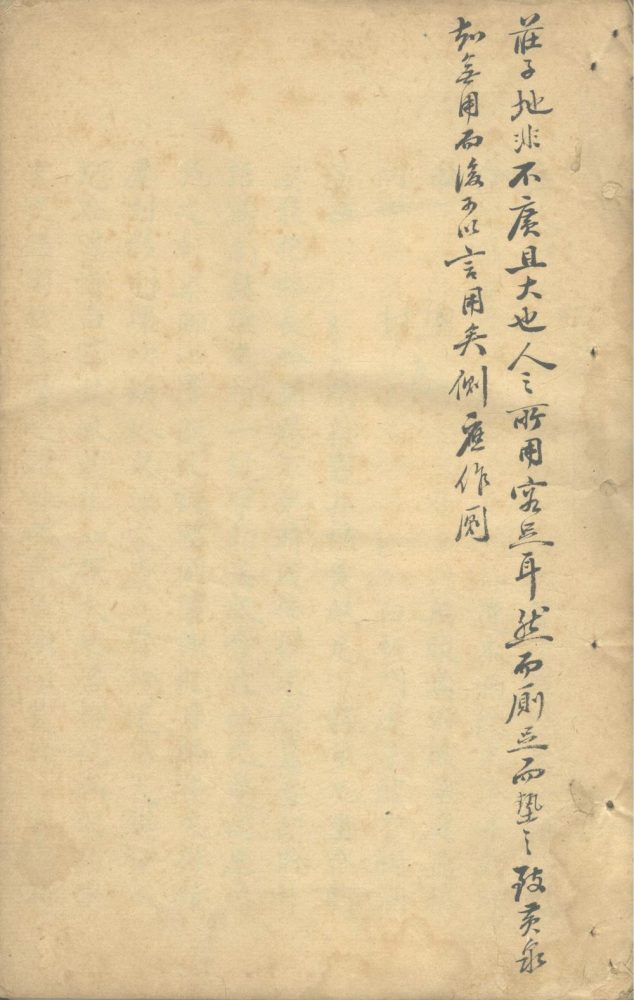 莊子地非不廣且大也人之所用容足耳然而廁足而墊之致黃泉
知無用而後可以言用矣側應作圂